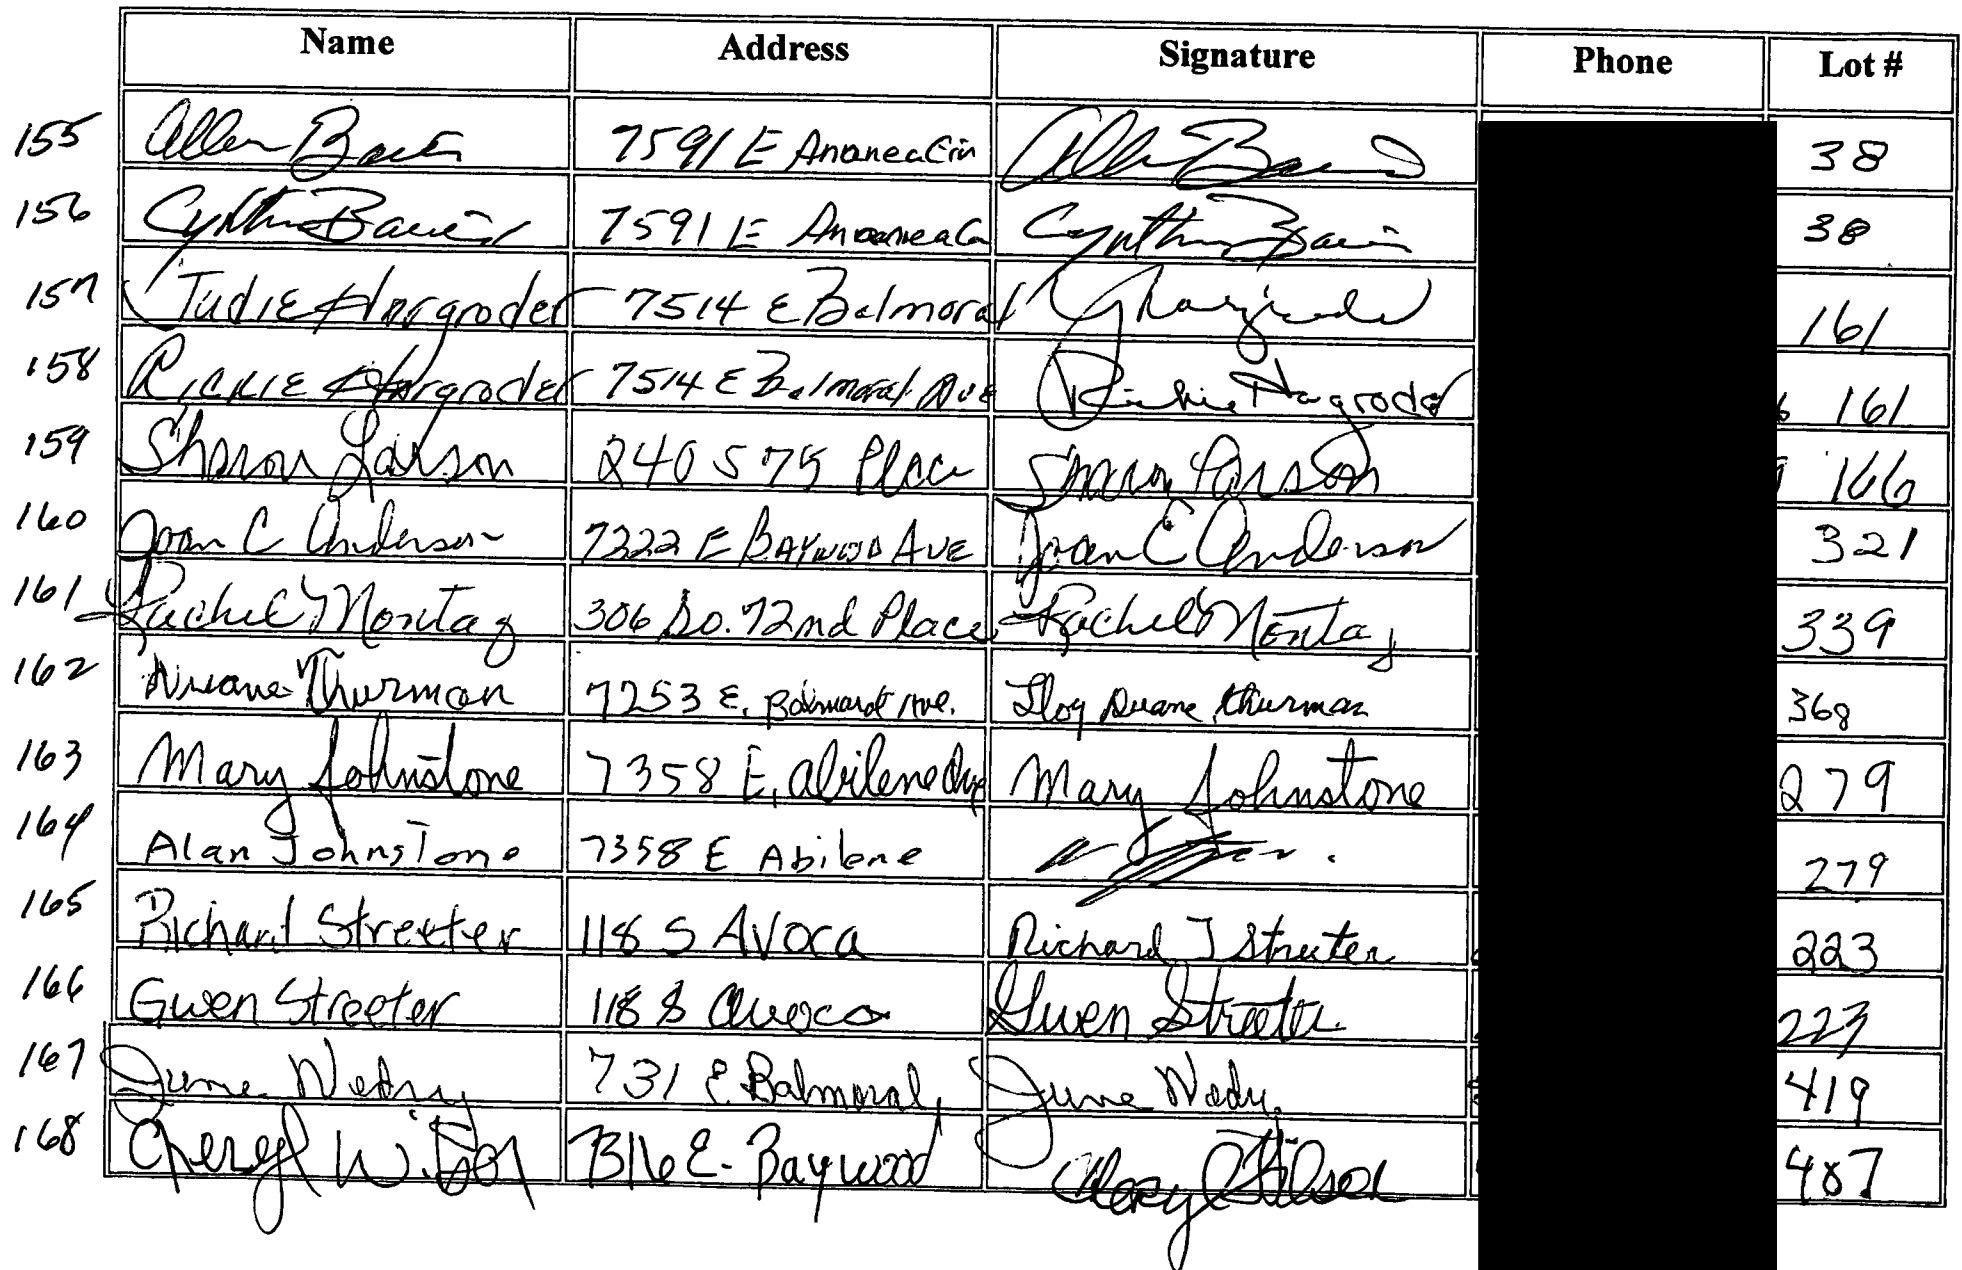 Name Address Signature Phone Lot #
155 Allen 7591 E Allen 38
156 Cynthia 7591 E Cynthia 38
157 Judie Hargroder 7514 E Balmoral 161
158 Rickie Hargroder 7514 E Balmoral Ave Rickie Hargroder 161
159 Sharon Larson 240 S 75 Place Sharon Larson 166
160 Joan C Anderson 7322 E BAYWOOD AVE Joan C Anderson 321
161 Rachel Montag 306 So. 72nd Place Rachel Montag 339
162 Duane Thurman 7253 E. Ave. Duane Thurman 368
163 Mary Johnstone 7358 E. Abilene Ave Mary Johnstone 279
164 Alan Johnstone 7358 E Abilene 279
165 Richard Streeter 118 S Avoca Richard J Streeter 223
166 Gwen Streeter 118 S Avoca Gwen Streeter 223
167 June 731 E. Balmoral, June 419
168 Cheryl E. Baywood 407